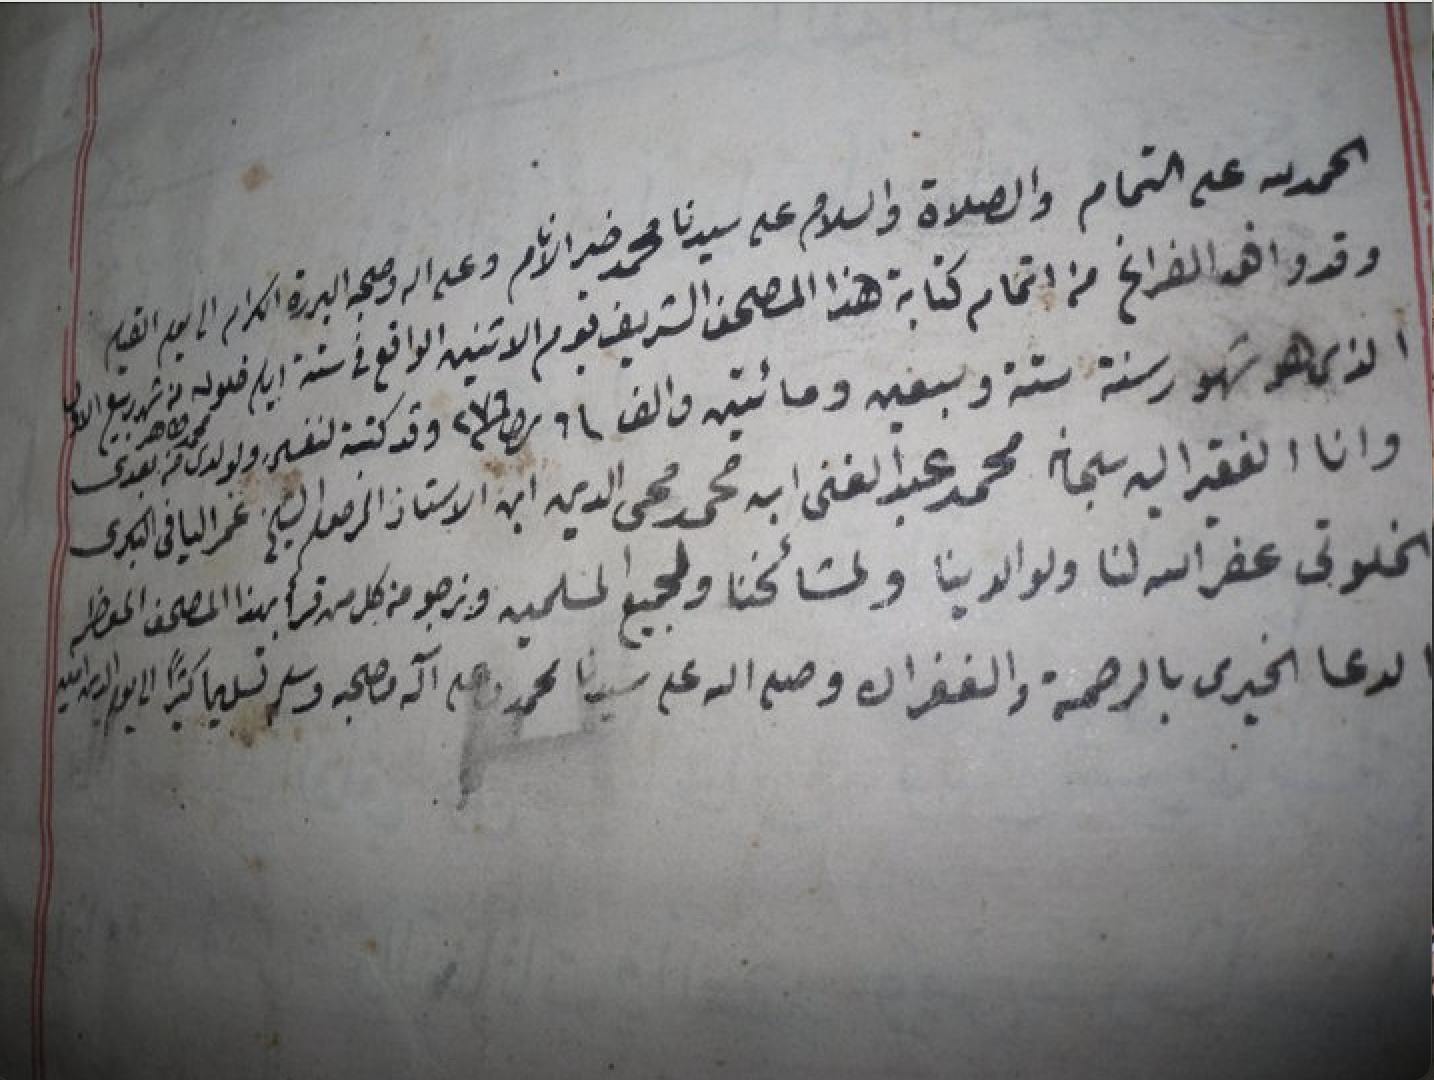 الحمد لله على التمام والصلاة والسلام على سيدنا محمد خير الانام وعلى اله وصحبه البررة الكرام الى يوم القيام
وقد وافق الفراغ من اتمام كتابة هذا المصحف الشريف يوم الاثنين الواقع في ستة ايام خلوله من شهر ربيع الاول
الذي هو شهور سنة ستة وسبعين ومائتين والف وقد كتبته لنفسي ولولدي محمد طاهر من بعدي
وانا الفقير اليه سبحانه محمد عبد الغني ابن محمد محي الدين ابن الاستاذ المرحوم الشيخ عمر اليافي البكري
الخلوتي غفر الله لنا ولوالدينا ولمشائخنا ولجميع المسلمين ونرجو من كل من قرأ بهذا المصحف المعظم
الدعا الخيري بالرحمة والغفران وصلى الله على سيدنا محمد وعلى آله وصحبه وسلم تسليما كثيرًا الى يوم الدين امين